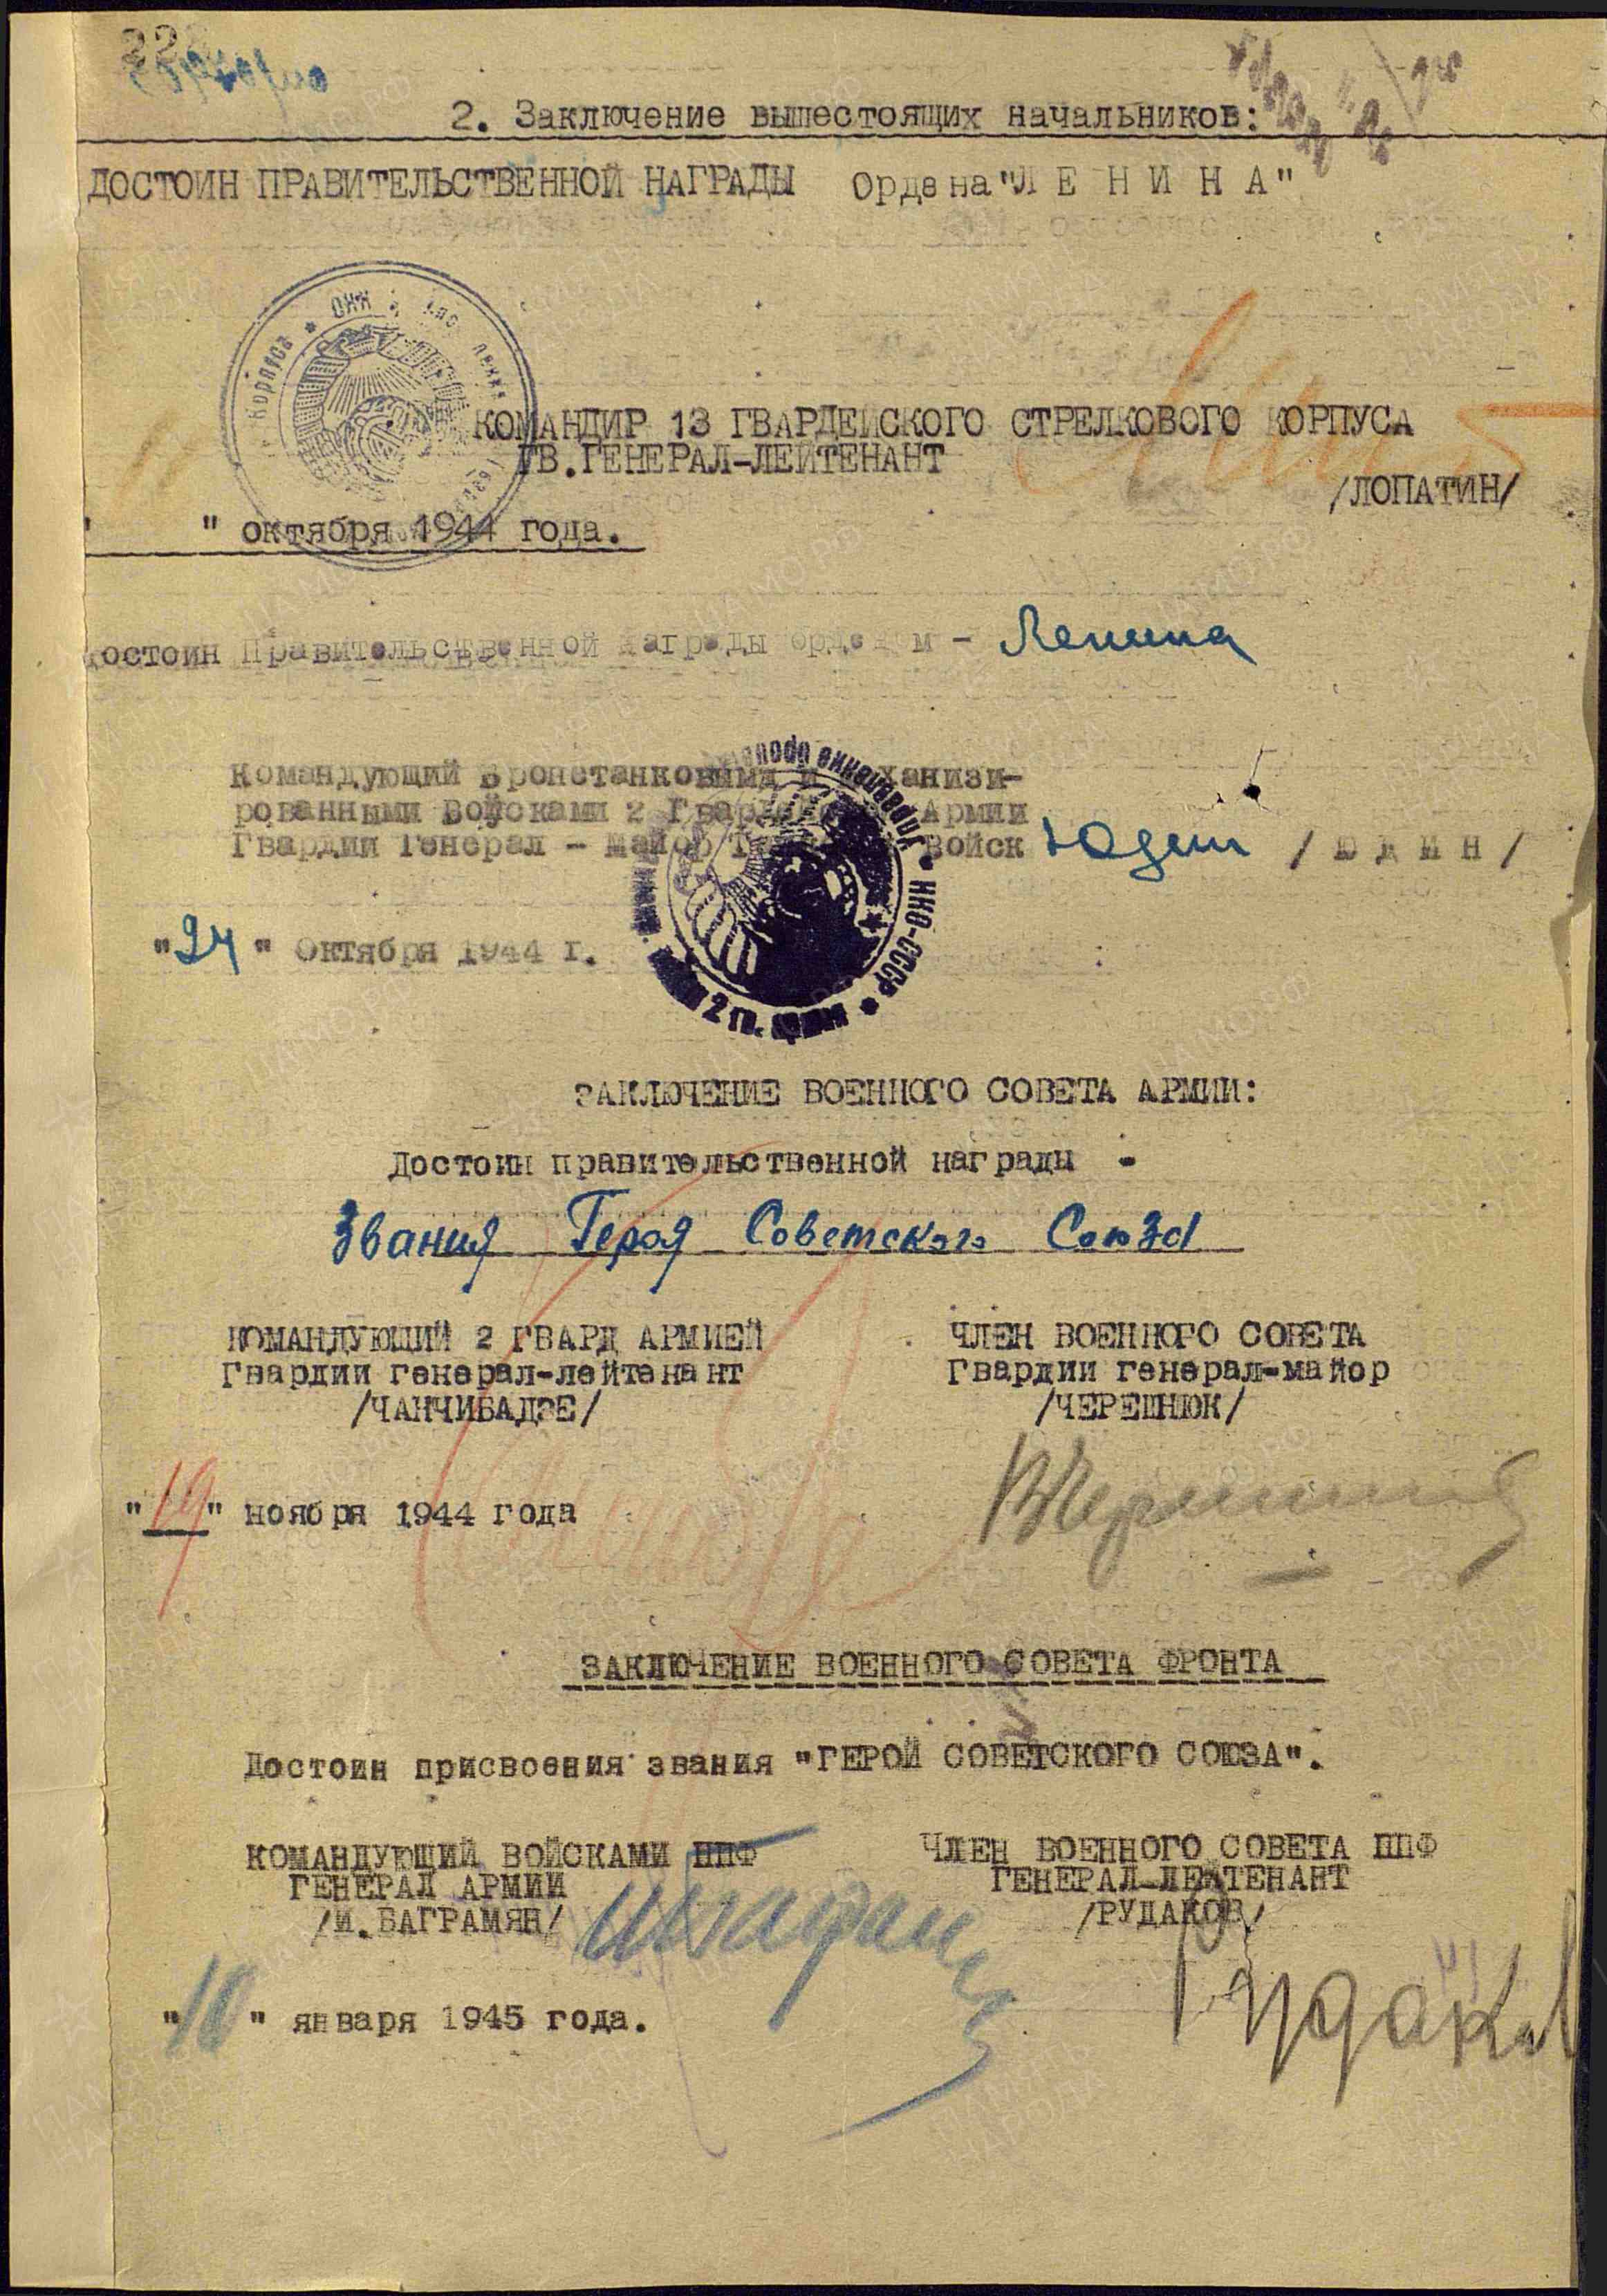 2. Заключение вышестоящих начальников:
ДОСТОИН ПРАВИТЕЛЬСТВЕННОЙ НАГРАДЫ Ордена "Л Е Н И Н А"
КОМАНДИР 13 ГВАРДЕЙСКОГО СТРЕЛКОВОГО КОРПУСА
ГВ.ГЕНЕРАЛ-ЛЕЙТЕНАНТ
/ЛОПАТИН/
" " октября 1944 года.
достоин Правительственной награды орденом - Ленина
Командующий Бронетанковыми и механизи-
рованными Войсками 2 Гвардейской Армии
Гвардии Генерал - Майор Танковых Войск Юдин / Ю Д И Н /
"24" Октября 1944 г.
НКО-СССР
ЗАКЛЮЧЕНИЕ ВОЕННОГО СОВЕТА АРМИИ:
Достоин правительственной награды -
Звания Героя Советского Союза
КОМАНДУЮЩИЙ 2 ГВАРД АРМИЕЙ
Гвардии генерал-лейтенант
/ЧАНЧИБАДЗЕ/
ЧЛЕН ВОЕННОГО СОВЕТА
Гвардии генерал-майор
/ЧЕРЕШНЮК/
"19" ноября 1944 года
ЗАКЛЮЧЕНИЕ ВОЕННОГО СОВЕТА ФРОНТА
Достоин присвоения звания "ГЕРОЙ СОВЕТСКОГО СОЮЗА".
КОМАНДУЮЩИЙ ВОЙСКАМИ ППФ
ГЕНЕРАЛ АРМИИ
/И.БАГРАМЯН/
ЧЛЕН ВОЕННОГО СОВЕТА ППФ
ГЕНЕРАЛ-ЛЕЙТЕНАНТ
/РУДАКОВ/
Рудаков
"10" января 1945 года.